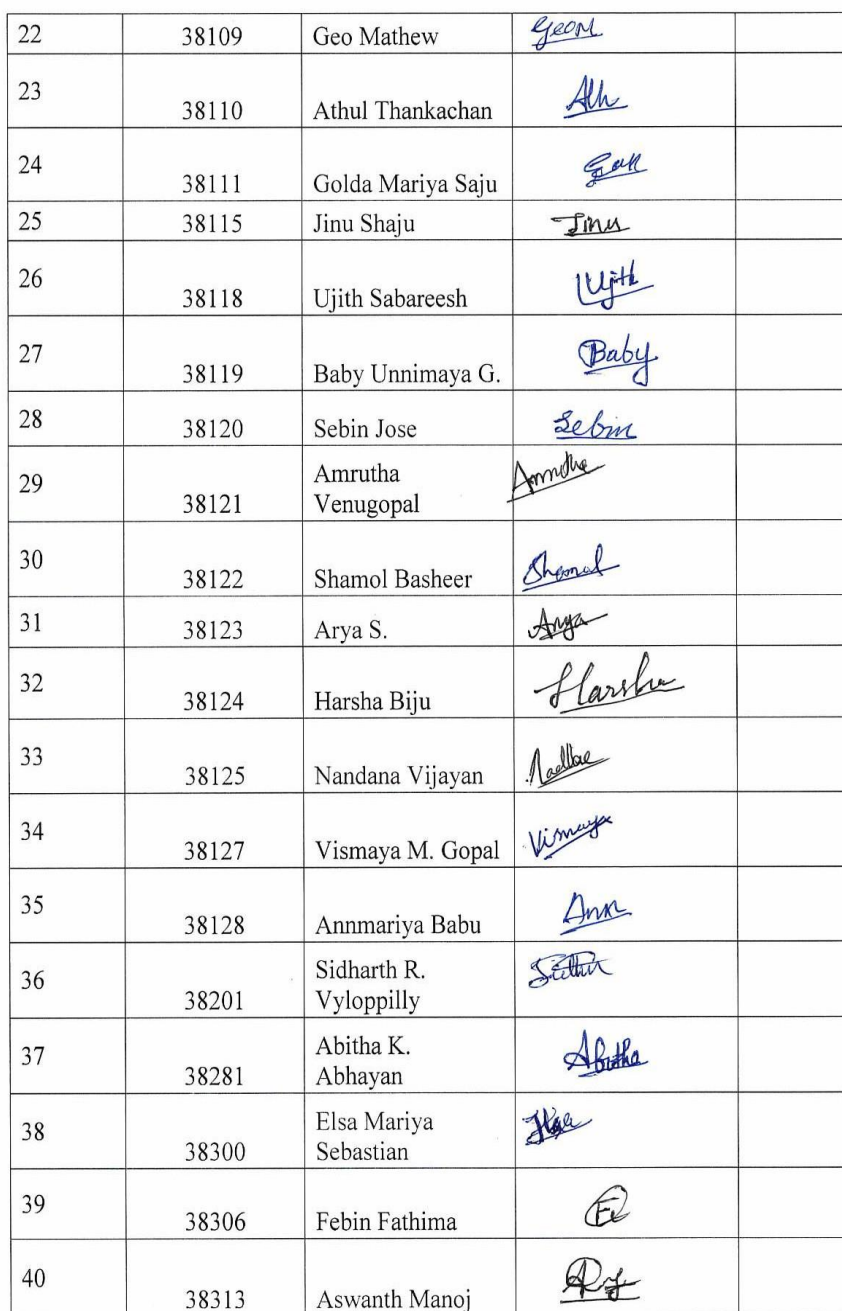 22 38109 Geo Mathew GeoM
23
38110 Athul Thankachan
24
38111 Golda Mariya Saju
25 38115 Jinu Shaju Jinu
26
38118 Ujith Sabareesh Ujith
27
38119 Baby Unnimaya G. Baby
28
38120 Sebin Jose Sebin
29
Amrutha
38121 Venugopal
30
38122 Shamol Basheer Shamol
31
38123 Arya S. Arya
32
38124 Harsha Biju Harsha
33
38125 Nandana Vijayan
34
38127 Vismaya M. Gopal Vismaya
35
38128 Annmariya Babu Ann
36
Sidharth R.
38201 Vyloppilly
37
Abitha K. Abitha
38281 Abhayan
38
Elsa Mariya
38300 Sebastian
39
38306 Febin Fathima
40
38313 Aswanth Manoj